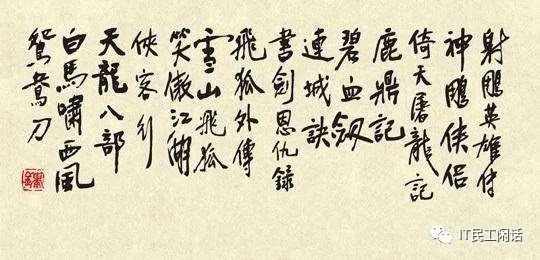 射鵰英雄传
神鵰侠侣
倚天屠龍記
鹿鼎記
碧血劔
連城訣
書劍恩仇錄
飛狐外傳
雪山飛狐
笑傲江湖
俠客行
天龍八部
白馬嘯西風
鴛鴦刀
IT民工闲话